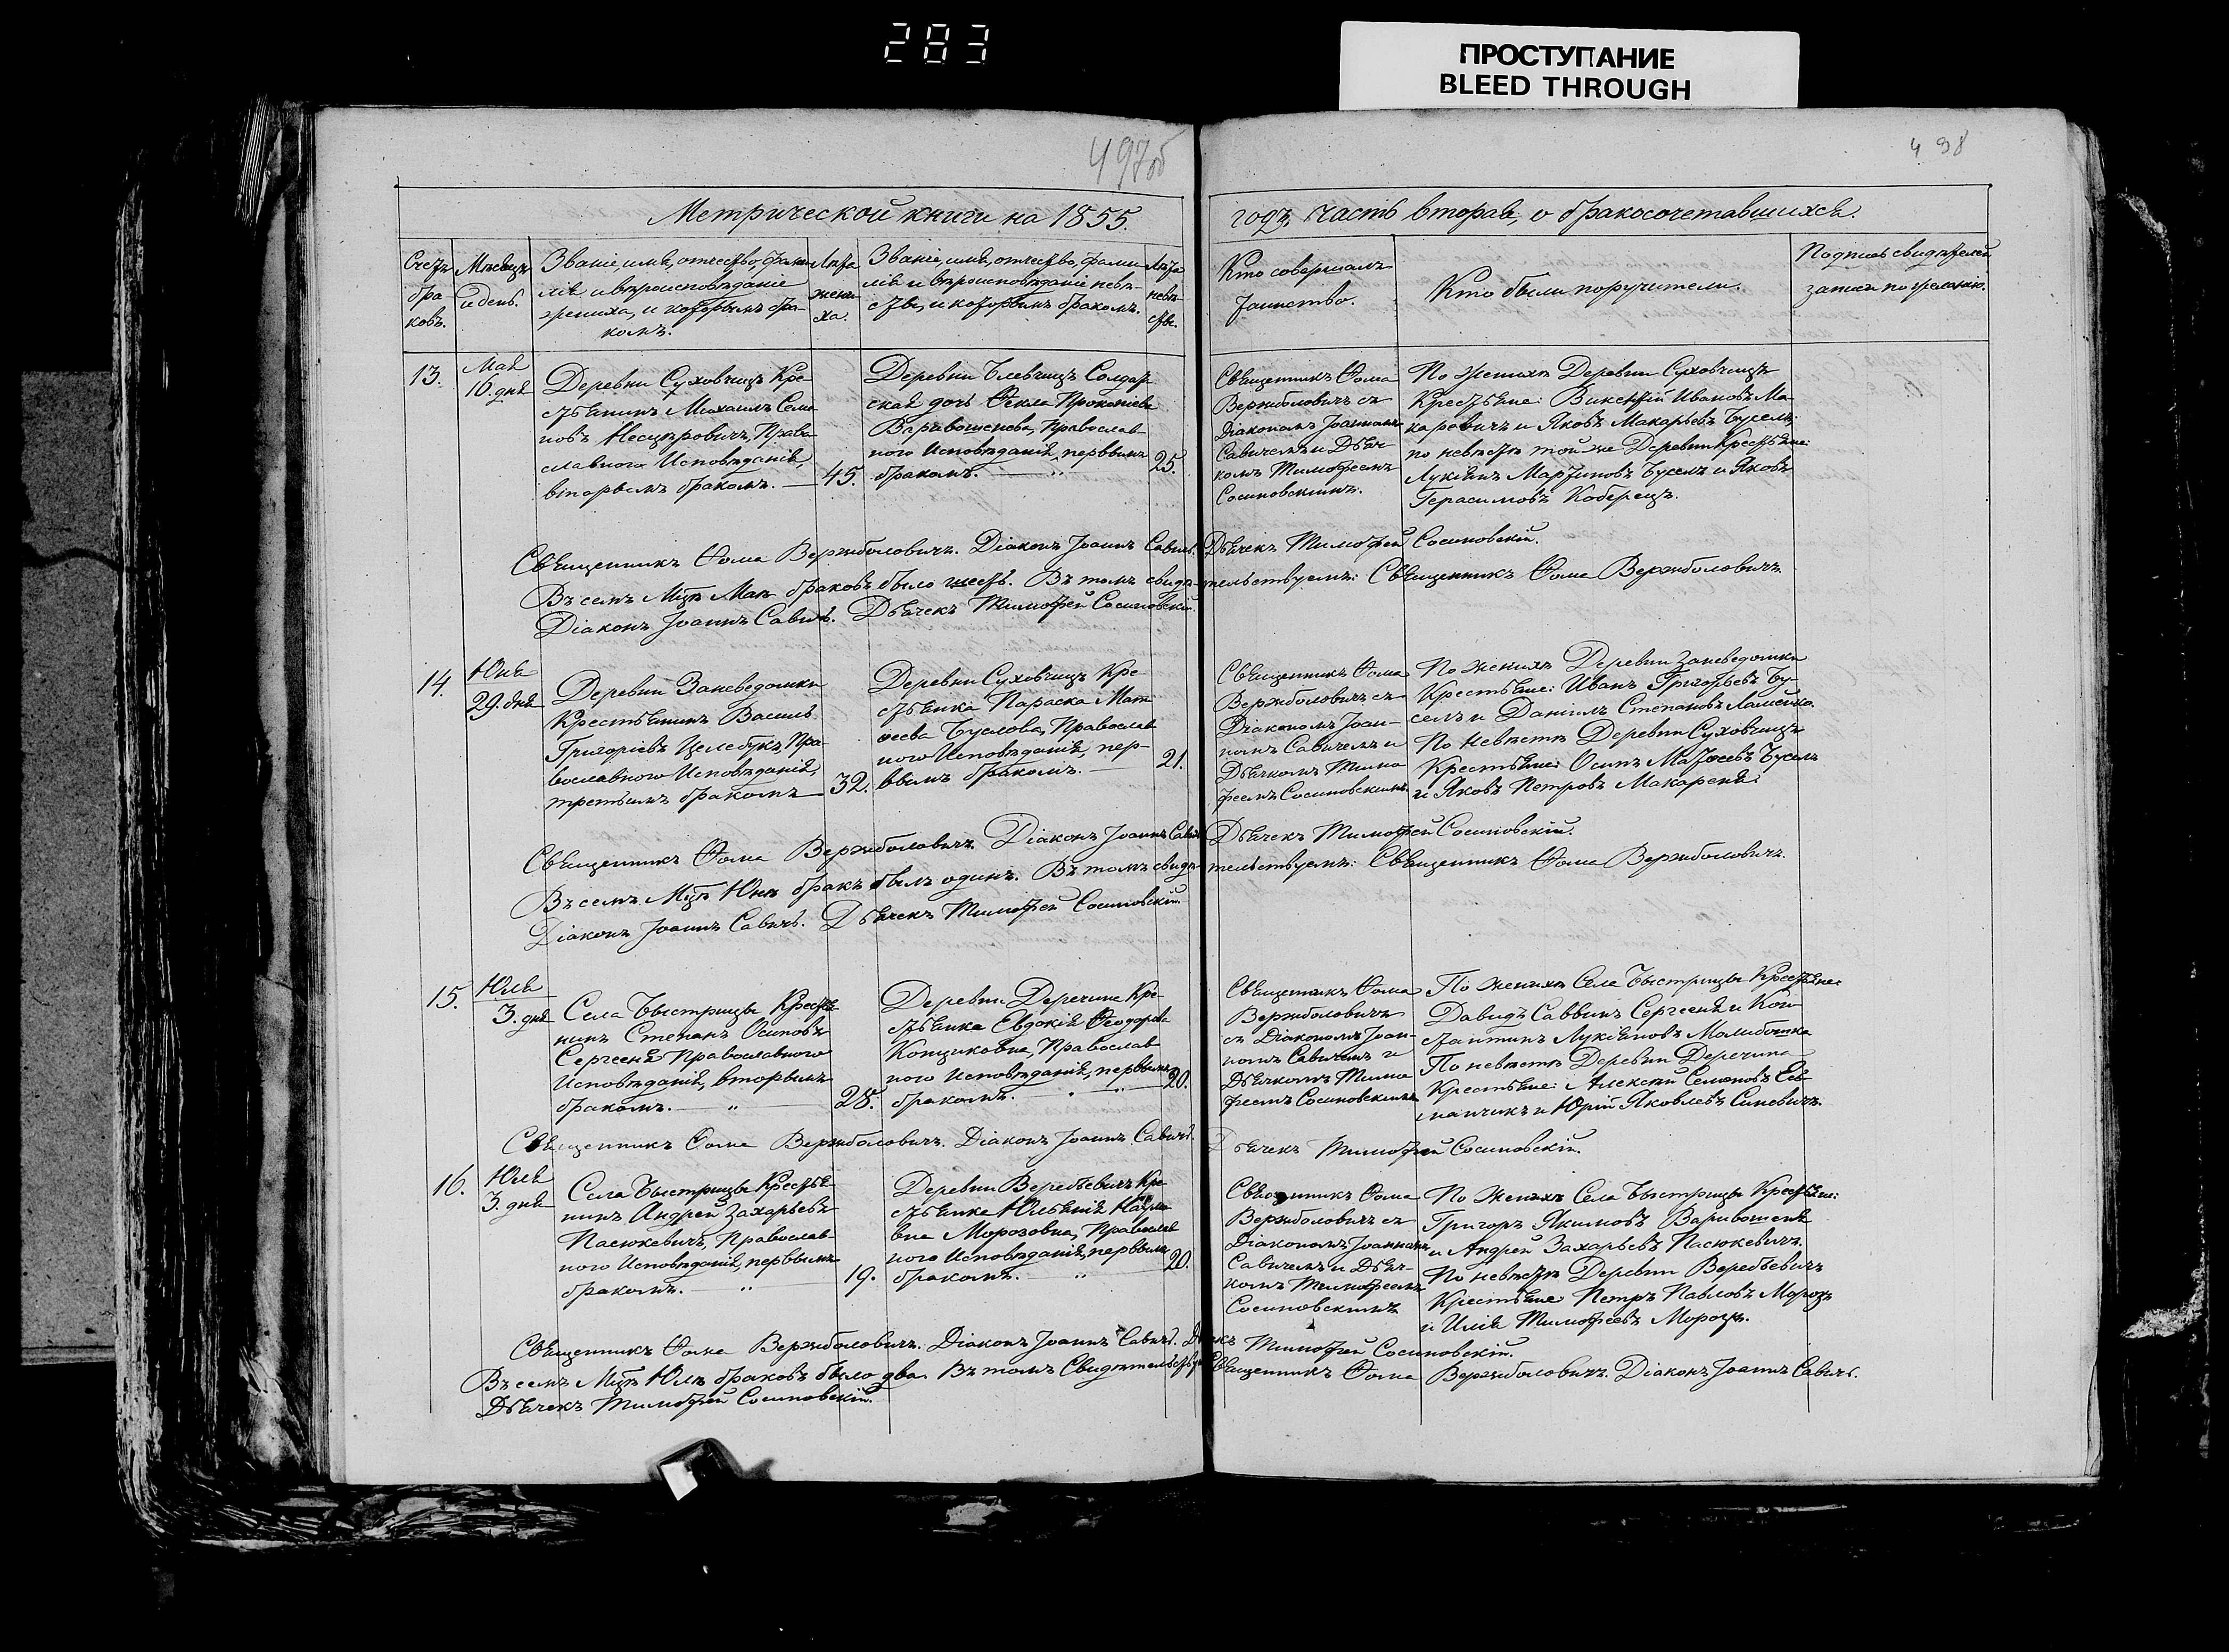 283
ПРОСТУПАНИЕ
BLEED THROUGH
497об
498
Метрической книги на 1855.
годъ, часть вторая, о бракосочетавшихся.
Счетъ
бра-
ковъ.
Мѣсяцъ
и день.
Званіе, имя, отчество, фами-
лія и вѣроисповѣданіе
жениха, и которымъ бра-
комъ.
Лѣта
жени-
ха.
Званіе, имя, отчество, фами-
лія и вѣроисповѣданіе невѣ-
сты, и которымъ бракомъ.
Лѣта
невѣ-
сты.
Кто совершалъ
таинство.
Кто были поручители.
Подпись свидѣтелей
записи по желанію.
13.
Мая
16. дня
Деревни Суховчицъ Кре-
стьянинъ Михаилъ Семе-
новъ Несцѣровичъ, Право-
славнаго Исповѣданія,
вторымъ бракомъ.
45.
Деревни Блевчицъ Солдат-
ская дочь Ѳекла Прокопіева
Варивошенева, Православ-
ного Исповѣданія, первымъ
бракомъ.
25.
Священникъ Ѳома
Вержболовичъ съ
Діакономъ Іоанномъ
Савичемъ и Дьяч-
комъ Тимофеемъ
Сосиновскимъ.
По женихѣ Деревни Суховчицъ
Крестьяне: Викентій Ивановъ Ма-
каревичъ и Яковъ Макарьевъ Буселъ:
по невѣстѣ той же Деревни Крестьяне:
Лукіянъ Мартиновъ Буселъ и Яковъ
Герасимовъ Коберецъ.
Священникъ Ѳома Вержболовичъ. Діаконъ Іоаннъ Савичъ. Дьячекъ Тимофей Сосиновскій.
Въ семъ Мцѣ Маѣ браковъ было шесть. Въ томъ свидѣтельствуемъ: Священникъ Ѳома Вержболовичъ
Діаконъ Іоаннъ Савичъ. Дьячекъ Тимофей Сосиновскій.
14.
Юня
29. дня
Деревни Заневедомки
Крестьянинъ Василь
Григоріевъ Целебукъ, Пра-
вославного Исповѣданія,
третьимъ бракомъ
32.
Деревни Суховчицъ Кре-
стьянка Параска Мат-
ѳеева Буслова, Православ-
ного Исповѣданія, пер-
вымъ бракомъ.
21.
Священникъ Ѳома
Вержболовичъ съ
Діакономъ Іоан-
номъ Савичемъ и
Дьячкомъ Тимо-
феемъ Сосиновскимъ.
По женихѣ Деревни Заневедомки
Крестьяне: Иванъ Григорьевъ Бу-
селъ и Даніилъ Степановъ
По невѣстѣ Деревни Суховчицъ
Крестьяне: Осипъ Матѳеевъ Буселъ
и Яковъ Петровъ Макареня.
Священникъ Ѳома Вержболовичъ. Діаконъ Іоаннъ Савичъ Дьячекъ Тимофей Сосиновскій.
Въ семъ Мцѣ Юнѣ бракъ былъ одинъ. Въ томъ свидѣтельствуемъ: Священникъ Ѳома Вержболовичъ.
Діаконъ Іоаннъ Савичъ. Дьячекъ Тимофей Сосиновскій.
15.
Юля
3. дня
Села Быстрицы Крестья-
нинъ Степанъ Осиповъ
Сергееня Православного
Исповѣданія, вторымъ
бракомъ.
28.
Деревни Деречина Кре-
стьянка Евдокія Ѳеодорова
Концыковна, Православ-
ного Исповѣданія, первымъ
бракомъ.
20.
Священникъ Ѳома
Вержболовичъ
съ Діакономъ Іоан-
номъ Савичемъ и
Дьячкомъ Тимо-
феемъ Сосиновскимъ
По женихѣ Села Быстрицы Крестьяне:
Давидъ Саввинъ Сергееня и Кон-
стантинъ Лукіяновъ Молибошка
По невѣстѣ Деревни Деречина
Крестьяне: Алексѣй Семеновъ
и Юрій Яковлевъ Синевичъ.
Священникъ Ѳома Вержболовичъ. Діаконъ Іоаннъ Савичъ. Дьячекъ Тимофей Сосиновскій.
16.
Юля
3. дня
Села Быстрицы Крестья-
нинъ Андрей Захарьевъ
Пасюкевичъ, Православ-
ного Исповѣданія, первымъ
бракомъ.
19.
Деревни Веребьевичъ Кре-
стьянка Юльянія
вна Морозовна, Православ-
ного Исповѣданія, первымъ
бракомъ.
20.
Священникъ Ѳома
Вержболовичъ съ
Діакономъ Іоанномъ
Савичемъ и Дьяч-
комъ Тимофеемъ
Сосиновскимъ
По женихѣ Села Быстрицы Крестьяне:
Григоръ Якимовъ Варивошеня
и Андрей Захарьевъ Пасюкевичъ.
По невѣстѣ Деревни Веребьевичъ
Крестьяне Петръ Павловъ Морозъ
и Илія Тимофеевъ Морозъ.
Священникъ Ѳома Вержболовичъ. Діаконъ Іоаннъ Савичъ. Дьячекъ Тимофей Сосиновскій.
Въ семъ Мцѣ Юлѣ браковъ было два. Въ томъ Свидѣтельствуемъ Священникъ Ѳома Вержболовичъ. Діаконъ Іоаннъ Савичъ.
Дьячекъ Тимофей Сосиновскій.